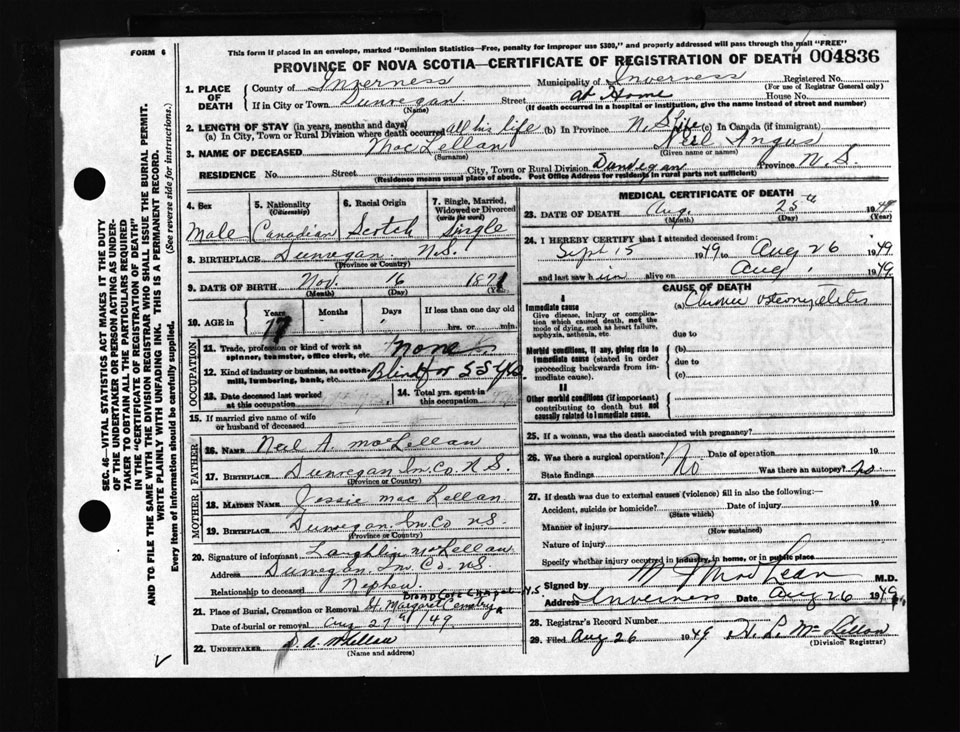 FORM 6
This form if placed in an envelope, marked "Dominion Statistics—Free, penalty for improper use $300," and properly addressed will pass through the mail "FREE"
PROVINCE OF NOVA SCOTIA—CERTIFICATE OF REGISTRATION OF DEATH 004836
SEC. 46—VITAL STATISTICS ACT MAKES IT THE DUTY
OF THE UNDERTAKER OR PERSON ACTING AS UNDER-
TAKER TO OBTAIN ALL THE PARTICULARS REQUIRED
IN THE "CERTIFICATE OF REGISTRATION OF DEATH"
AND TO FILE THE SAME WITH THE DIVISION REGISTRAR WHO SHALL ISSUE THE BURIAL PERMIT.
WRITE PLAINLY WITH UNFADING INK. THIS IS A PERMANENT RECORD.
Every item of information should be carefully supplied. (See reverse side for instructions.)
1. PLACE OF DEATH County of Inverness Municipality of Inverness Registered No.
(For use of Registrar General only)
If in City or Town Dunvegan Street at Home House No.
(Name) (If death occurred in a hospital or institution, give the name instead of street and number)
2. LENGTH OF STAY (in years, months and days)
(a) In City, Town or Rural Division where death occurred all his life (b) In Province N.S. life (c) In Canada (if immigrant)
3. NAME OF DECEASED MacLellan Neil Angus
(Surname) (Given name or names)
RESIDENCE No. Street City, Town or Rural Division Dunvegan Province N.S.
(Residence means usual place of abode. Post Office Address for residents in rural parts not sufficient)
4. Sex 5. Nationality (Citizenship) 6. Racial Origin 7. Single, Married, Widowed or Divorced (write the word)
Male Canadian Scotch Single
8. BIRTHPLACE Dunvegan N.S.
(Province or Country)
9. DATE OF BIRTH Nov. 16 1871
(Month) (Day) (Year)
10. AGE in Years Months Days If less than one day old
77 hrs. or min.
OCCUPATION
11. Trade, profession or kind of work as spinner, teamster, office clerk, etc. None
12. Kind of industry or business, as cotton-mill, lumbering, bank, etc. Blind for 55 yrs
13. Date deceased last worked at this occupation
14. Total yrs. spent in this occupation
15. If married give name of wife or husband of deceased
FATHER
16. NAME Neil A. MacLellan
17. BIRTHPLACE Dunvegan Inv. Co. N.S.
(Province or Country)
MOTHER
18. MAIDEN NAME Jessie MacLellan
19. BIRTHPLACE Dunvegan Inv. Co N.S.
(Province or Country)
20. Signature of informant Laughlin McLellan
Address Dunvegan Inv. Co. N.S.
Relationship to deceased Nephew
21. Place of Burial, Cremation or Removal St. Margaret Cemetery N.S
Date of burial or removal Aug 27th /49
22. UNDERTAKER D. A. McLellan
(Name and address)
MEDICAL CERTIFICATE OF DEATH
23. DATE OF DEATH Aug. 25th 1949
(Month) (Day) (Year)
24. I HEREBY CERTIFY that I attended deceased from:
Sept 15 1949 to Aug 26 1949
and last saw him alive on Aug. 1949
CAUSE OF DEATH
I
Immediate cause (a) Chronic osteomyelitis
Give disease, injury or complication which caused death, not the mode of dying, such as heart failure, asphyxia, asthenia, etc.
due to
Morbid conditions, if any, giving rise to immediate cause (stated in order proceeding backwards from immediate cause).
(b)
due to
(c)
II
Other morbid conditions (if important) contributing to death but not causally related to immediate cause.
25. If a woman, was the death associated with pregnancy?
26. Was there a surgical operation? No Date of operation 19
State findings Was there an autopsy? no
27. If death was due to external causes (violence) fill in also the following:—
Accident, suicide or homicide? Date of injury 19
(State which)
Manner of injury
(How sustained)
Nature of injury
Specify whether injury occurred in industry, in home, or in public place
Signed by MacLean M.D.
Address Inverness Date Aug 26 1949
28. Registrar's Record Number
29. Filed Aug 26 1949 H. L. McLellan
(Division Registrar)